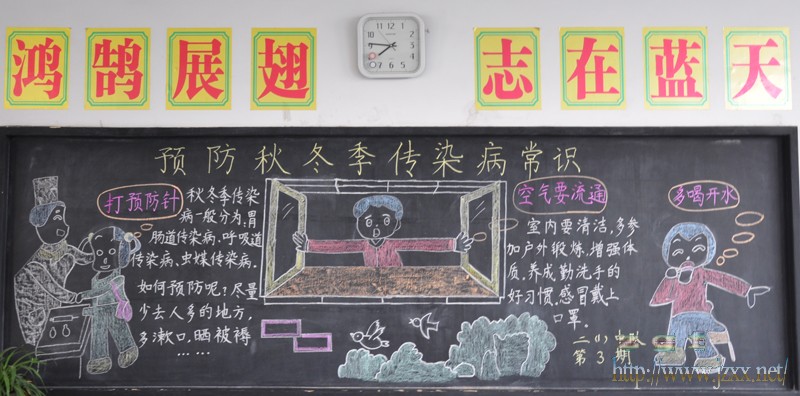 鸿鹄展翅 志在蓝天
12
11
1
10
2
9
3
8
4
7
6
5
预防秋冬季传染病常识
打预防针
秋冬季传染
病一般分为:胃
肠道传染病、呼吸道
传染病、虫媒传染病.
如何预防呢:尽量
少去人多的地方,
多漱口,晒被褥
……
空气要流通
室内要清洁,多参
加户外锻炼,增强体
质,养成勤洗手的
好习惯,感冒戴上
口罩.
二(1)中队
第3期
多喝开水
http://www.jzxx.net/